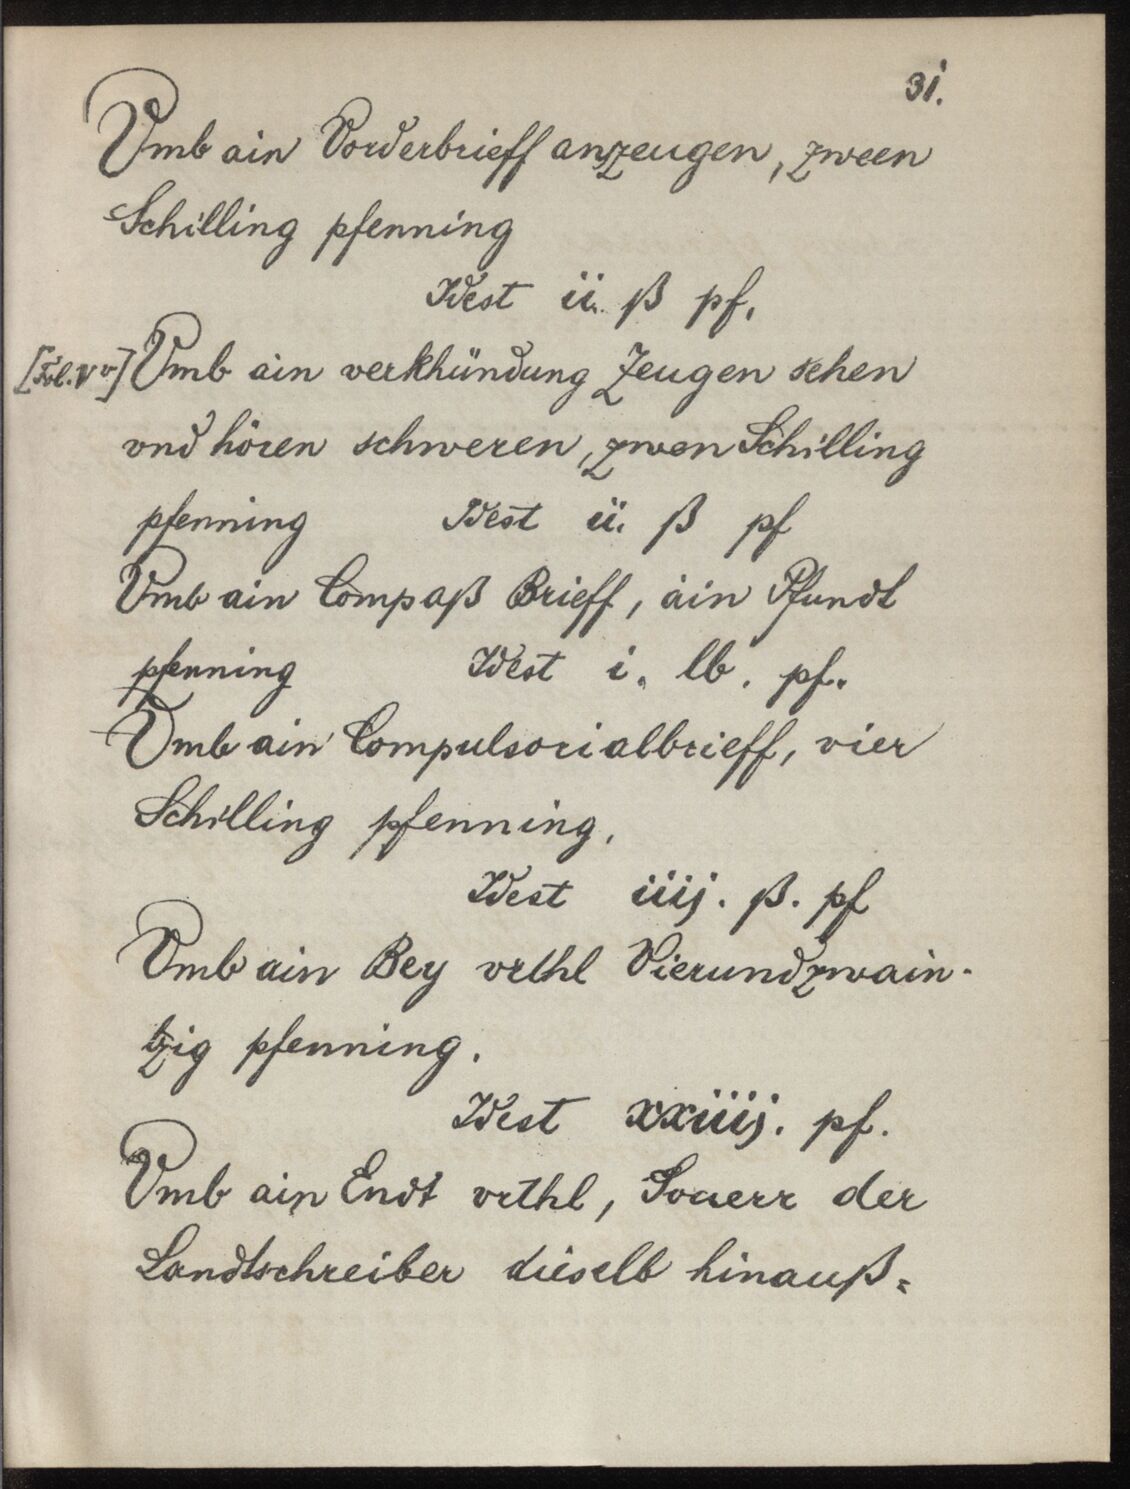 31.
Vmb ain Vorderbrieff anzeugen, zween
Schilling pfenning
Idest ii. ß pf.
[Fol. V v] Vmb ain verkhündung Zeugen sehen
vnd hören schweren, zwen Schilling
pfenning Idest ii. ß pf
Vmb ain Compaß Brieff, ain Pfundt
pfenning Idest i. lb. pf.
Vmb ain Compulsorialbrieff, vier
Schilling pfenning.
Idest iiij. ß. pf
Vmb ain Bey vrthl Vierundzwain-
tzig pfenning.
Idest xxiiij. pf.
Vmb ain Endt vrthl, Souerr der
Landtschreiber dieselb hinauß=